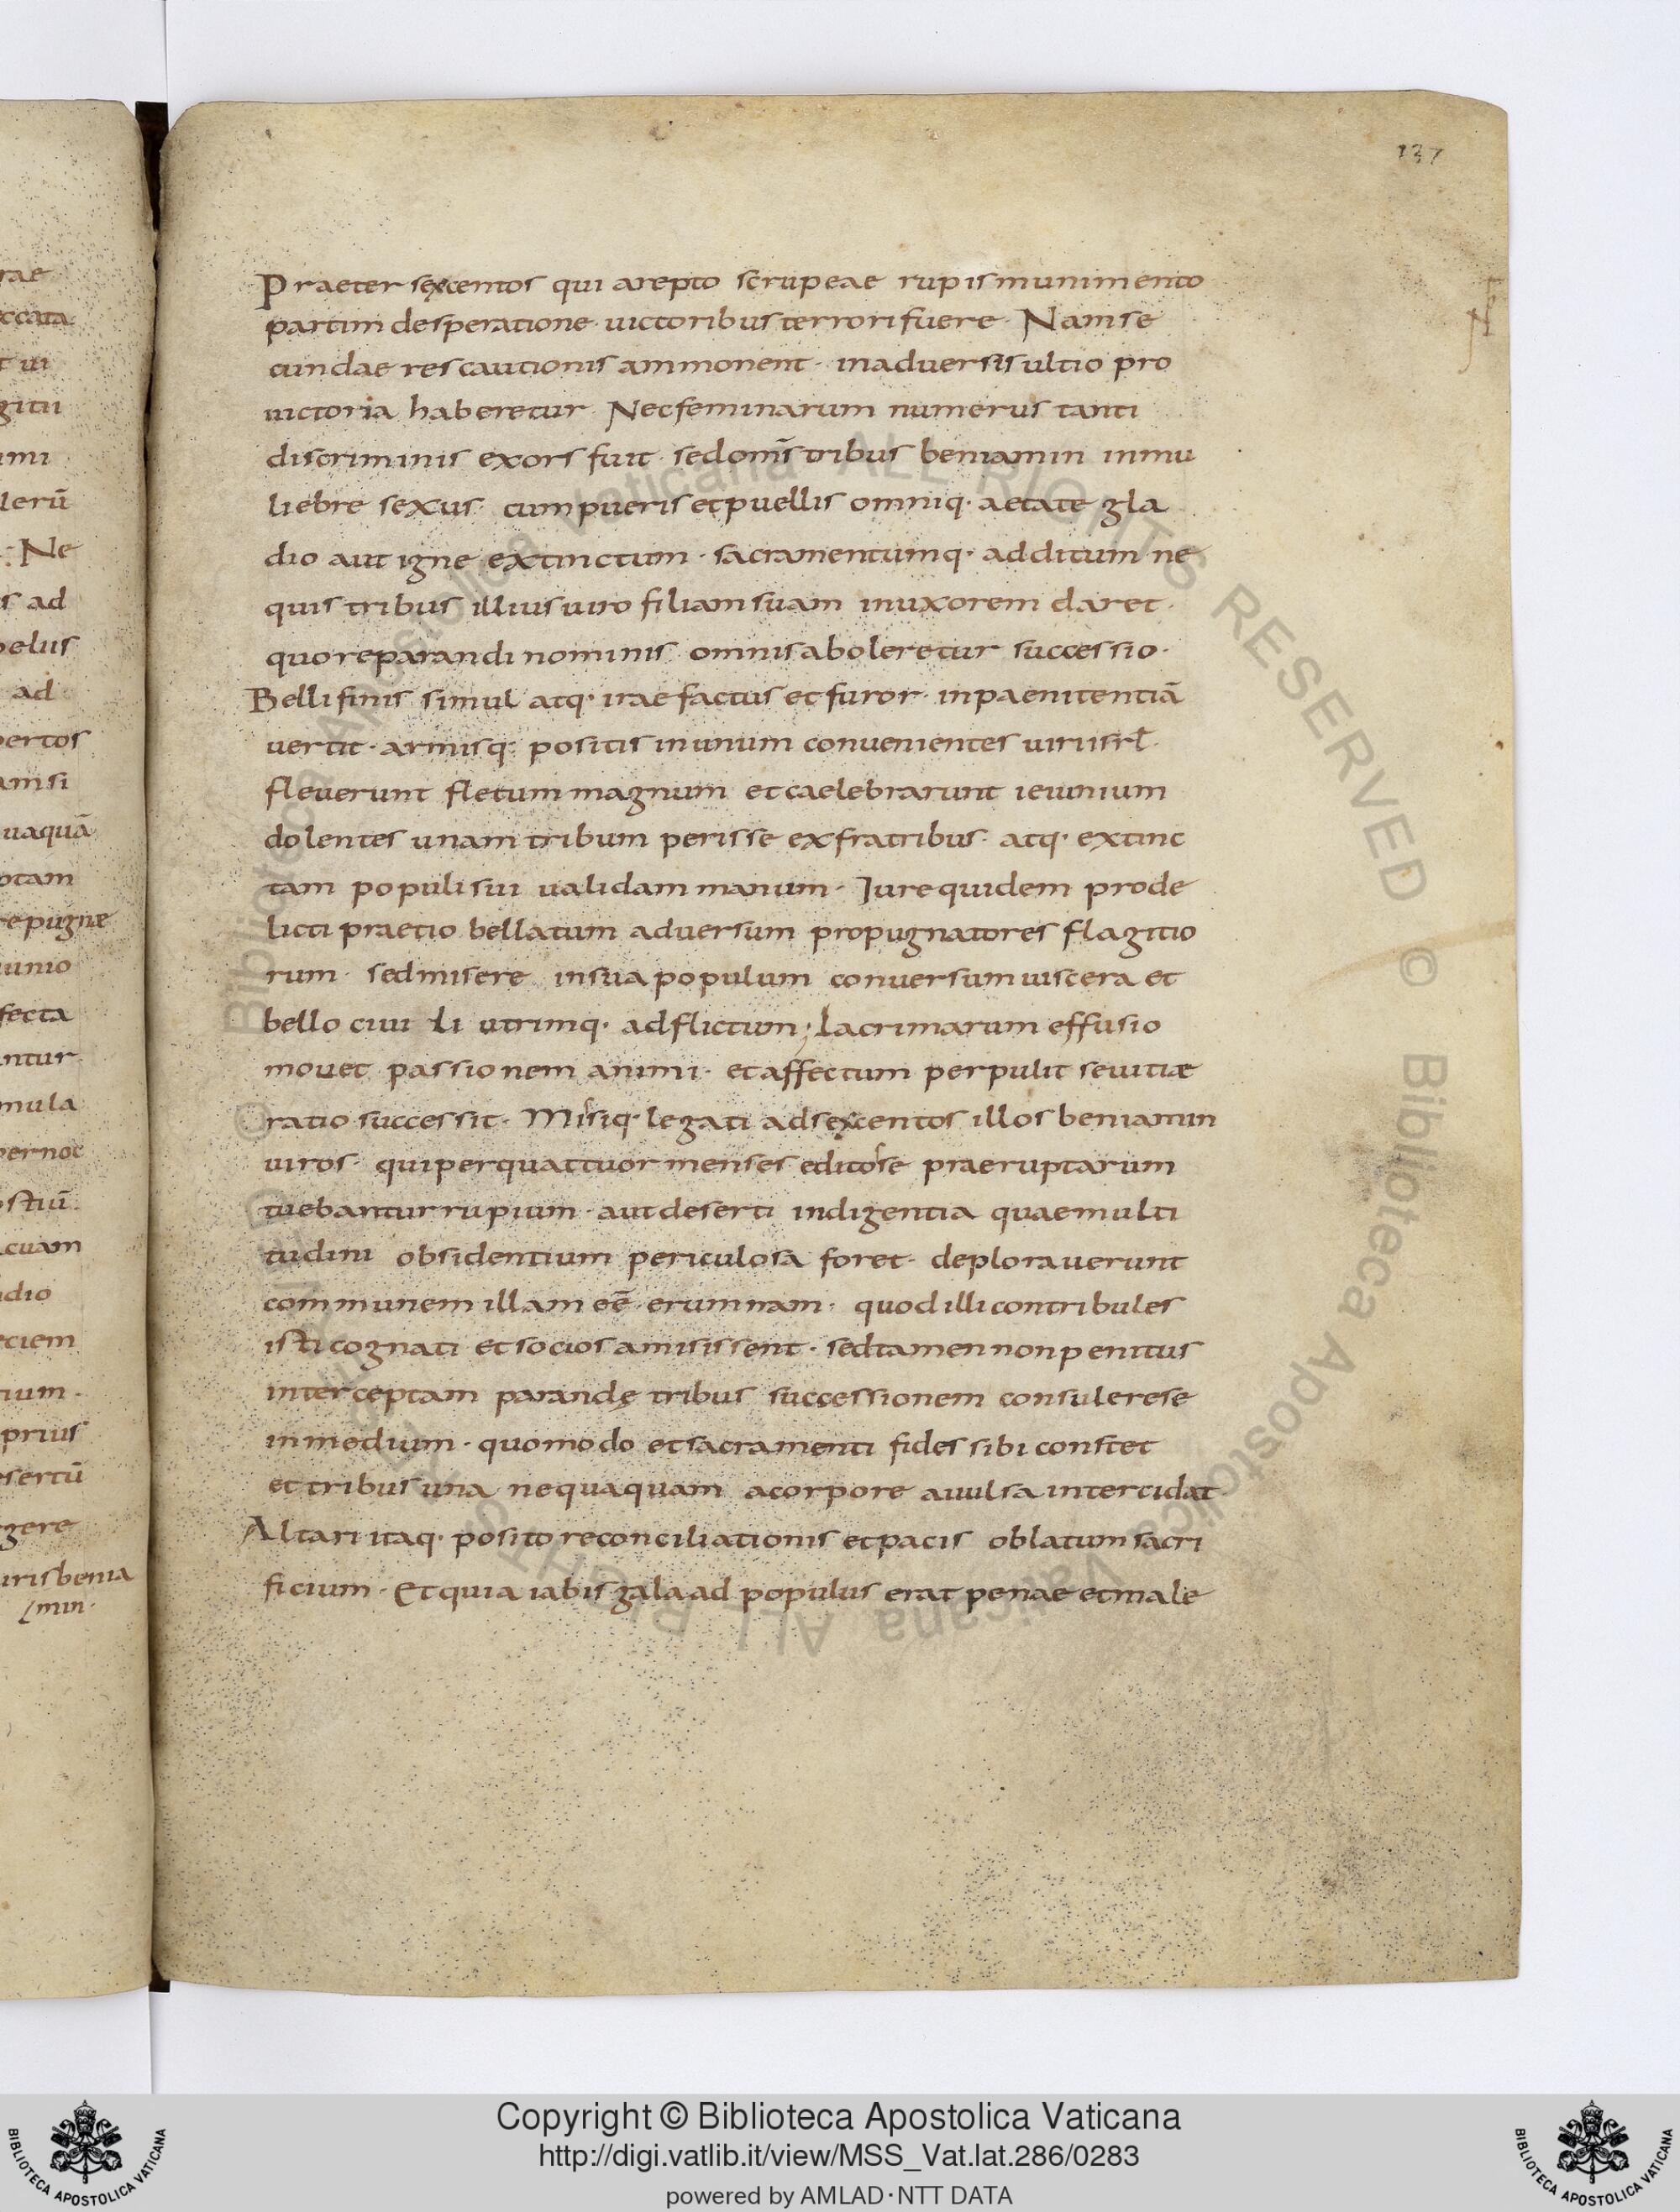 137
Praeter sexcentos qui arepto scrupeae rupis munimento
partim desperatione· uictoribus terrori fuere· Nam se
cundae res cautionis ammonent· in aduersis ultio pro
uictoria haberetur· Nec feminarum numerus tanti
discriminis exors fuit· sed omīs tribus beniamin in mu
liebre sexus· cum pueris et puellis omniq· aetate gla
dio aut igne extinctum· sacramentumq· additum ne
quis tribus illius uiro filiam suam in uxorem daret·
quo reparandi nominis omnis aboleretur successio·
Belli finis simul atq· irae factus et furor· in paenitentiā
uertit· armisq· positis in unum conuenientes uiri isrł·
fleuerunt fletum magnum et caelebrarunt ieiunium
dolentes unam tribum perisse ex fratribus· atq· extinc
tam populi sui ualidam manum· Iure quidem pro de
licti praetio bellatum aduersum propugnatores flagitio
rum· sed misere in sua populum conuersum uiscera et
bello ciui li utrimq· adflictum; Lacrimarum effusio
mouet passionem animi· et affectum perpulit seuitiæ
ratio successit· Misiq· legati ad sexcentos illos beniamin
uiros· qui per quattuor menses edito se praeruptarum
tuebantur rupium· aut deserti indigentia quae multi
tudini obsidentium periculosa foret· deplorauerunt
communem illam eē erumnam· quod illi contribules
isti cognati et socios amisissent· sed tamen non penitus
interceptam parandę tribus successionem consulere se
in medium· quomodo et sacramenti fides sibi constet
et tribus una nequaquam a corpore auulsa intercidat·
Altari itaq· posito reconciliationis et pacis oblatum sacri
ficium· Et quia iabis galaad populus erat penae et male
rae
eccata
gitii
lerū
Ne
s ad
ad
pertos
am si
uaquā
otam
re pugnæ
fecta
antur·
mula
pernoc
ostiū·
dio
eciem
prius
esertū
gere
uiris benia
min·
© Biblioteca Apostolica Vaticana ALL RIGHTS RESERVED
© Biblioteca Apostolica Vaticana ALL RIGHTS RESERVED
Copyright © Biblioteca Apostolica Vaticana
http://digi.vatlib.it/view/MSS_Vat.lat.286/0283
powered by AMLAD·NTT DATA
BIBLIOTECA APOSTOLICA VATICANA
BIBLIOTECA APOSTOLICA VATICANA